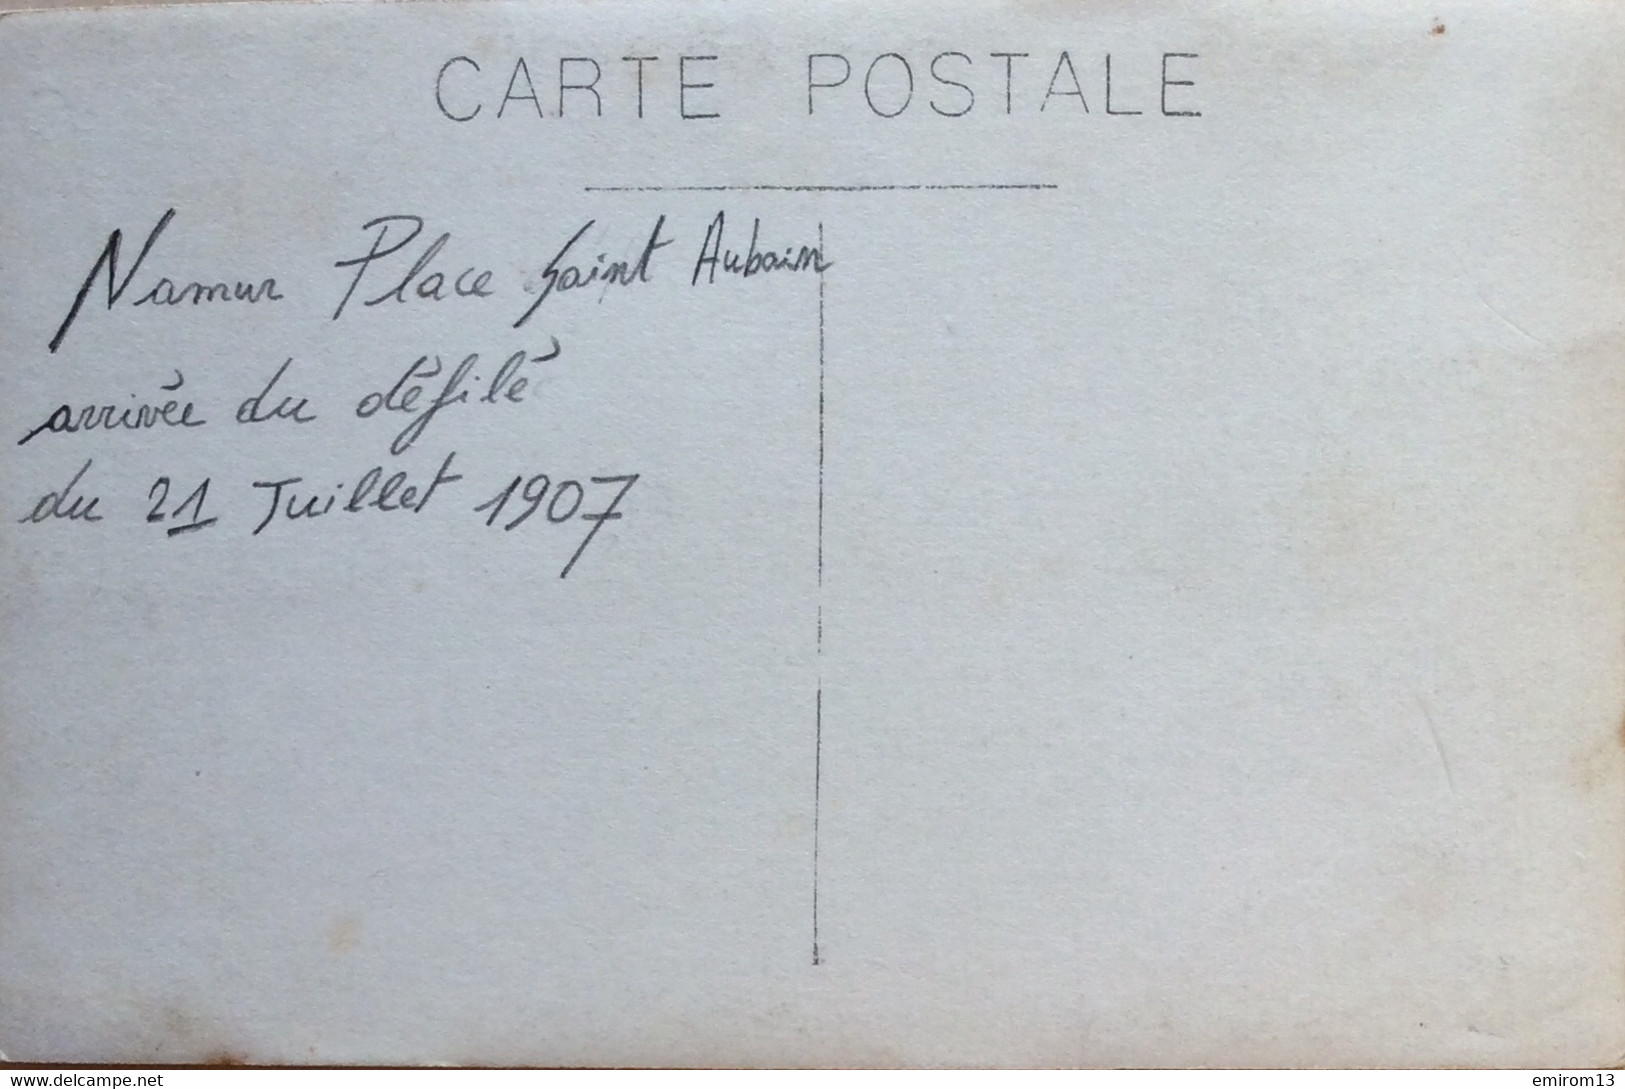 CARTE POSTALE
Namur Place Saint Aubain
arrivée du défilé
du 21 Juillet 1907
www.delcampe.net
emirom13